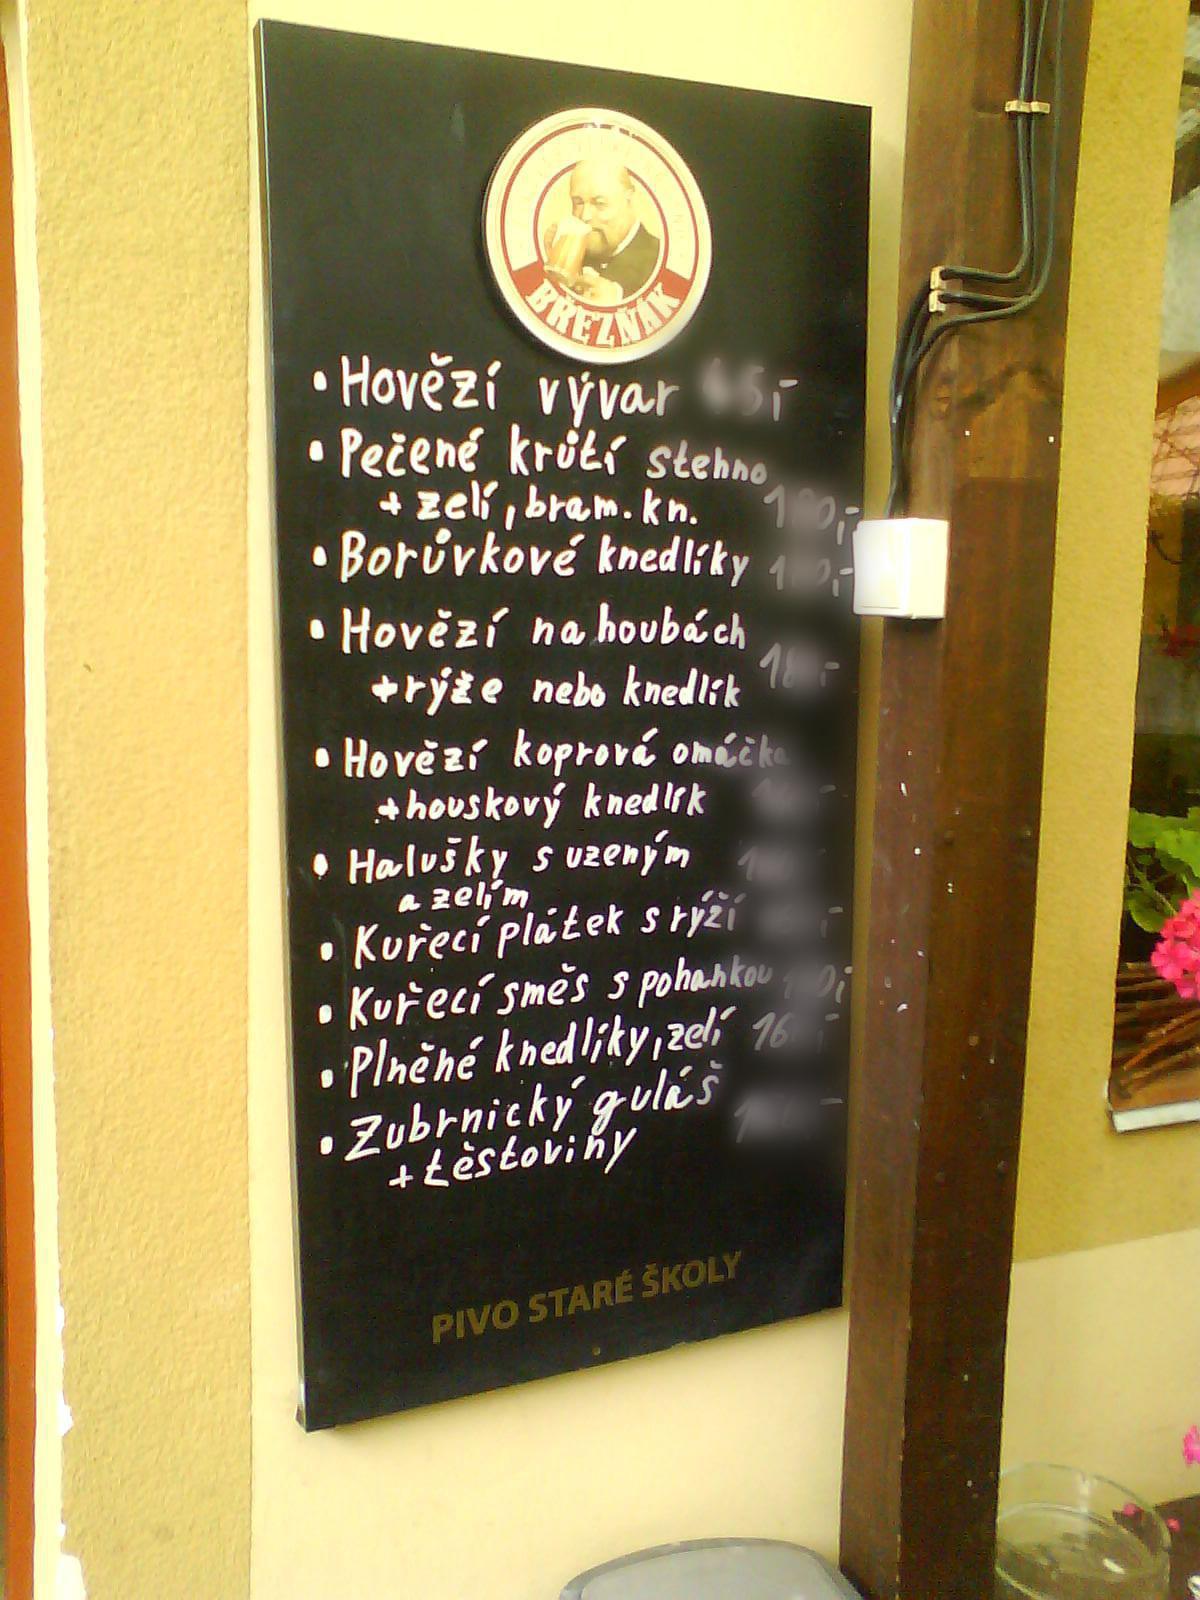 BŘEZŇÁK
• Hovězí vývar
• Pečené krůtí stehno
+ zelí, bram. kn.
• Borůvkové knedlíky
• Hovězí na houbách
+ rýže nebo knedlík
• Hovězí koprová omáčka
+ houskový knedlík
• Halušky s uzeným
a zelím
• Kuřecí plátek s rýží
• Kuřecí směs s pohankou
• Plněné knedlíky, zelí
• Zubrnický guláš
+ těstoviny
PIVO STARÉ ŠKOLY